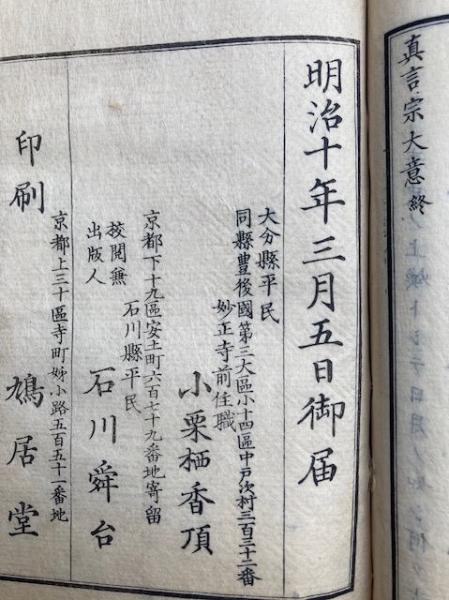 真言宗大意終
明治十年三月五日御届
大分縣平民
同縣豊後國第三大區小十四區中戸次村三百三十二番
妙正寺前住職
小栗栖香頂
京都下十九區安土町六百七十九番地寄留
石川縣平民
挍閲兼
出版人
石川舜台
京都上三十區寺町姉小路五百五十一番地
印刷
鳩居堂